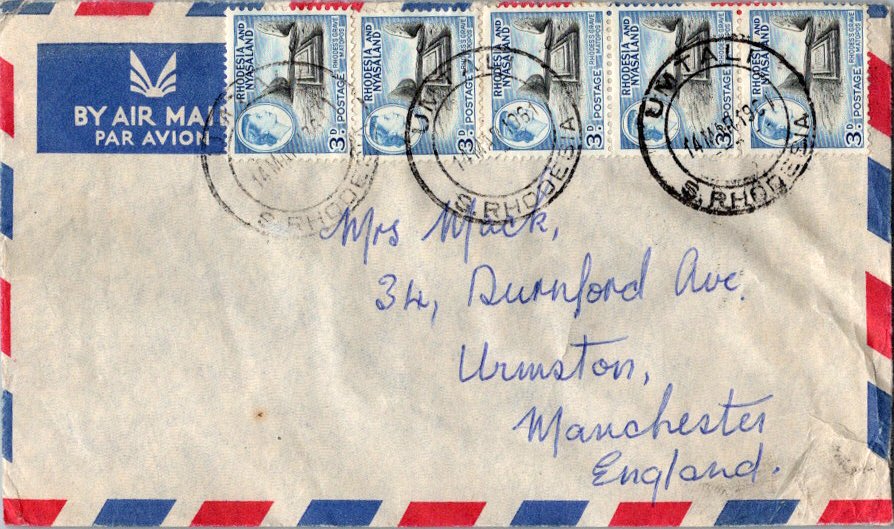 BY AIR MAIL
PAR AVION
RHODESIA AND
NYASALAND
RHODES'S GRAVE
MATOPOS
3D POSTAGE
RHODESIA AND
NYASALAND
RHODES'S GRAVE
MATOPOS
3D POSTAGE
RHODESIA AND
NYASALAND
RHODES'S GRAVE
MATOPOS
3D POSTAGE
RHODESIA AND
NYASALAND
RHODES'S GRAVE
MATOPOS
3D POSTAGE
RHODESIA AND
NYASALAND
RHODES'S GRAVE
MATOPOS
3D POSTAGE
UMTALI
14 MAR
S. RHODESIA
UMTALI
14 MAR 196
S. RHODESIA
UMTALI
14 MAR 196
S. RHODESIA
Mrs Mack,
34, Durnford Ave.
Urmston,
Manchester
England.